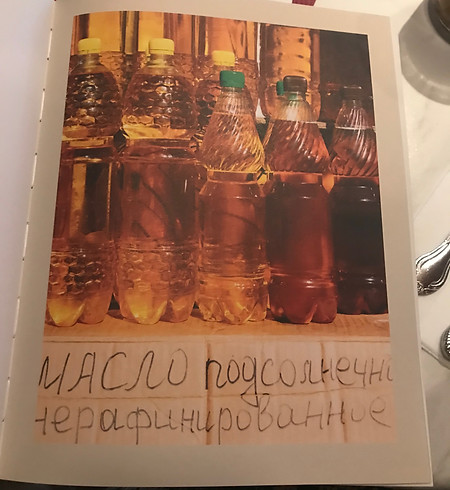 МАСЛО подсолнечн
нерафинированное